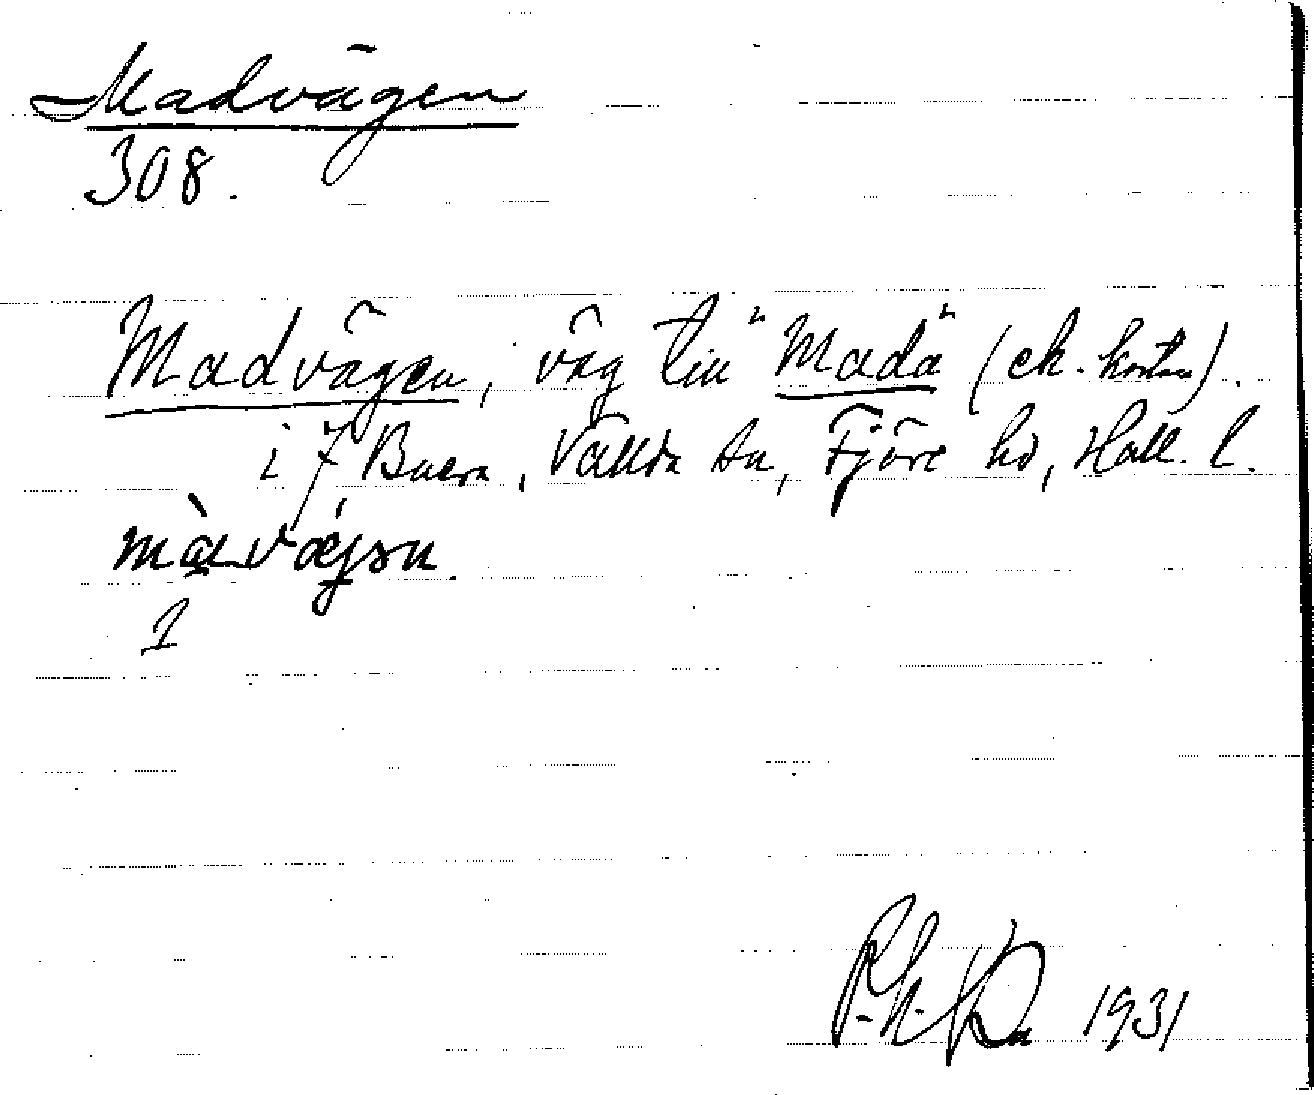 Madvägen
308.
Madvägen, väg till "Mada" (ek. kartan).
i 7 Buera, Vallda sn, Fjäre hd, Hall. l.
1
1931